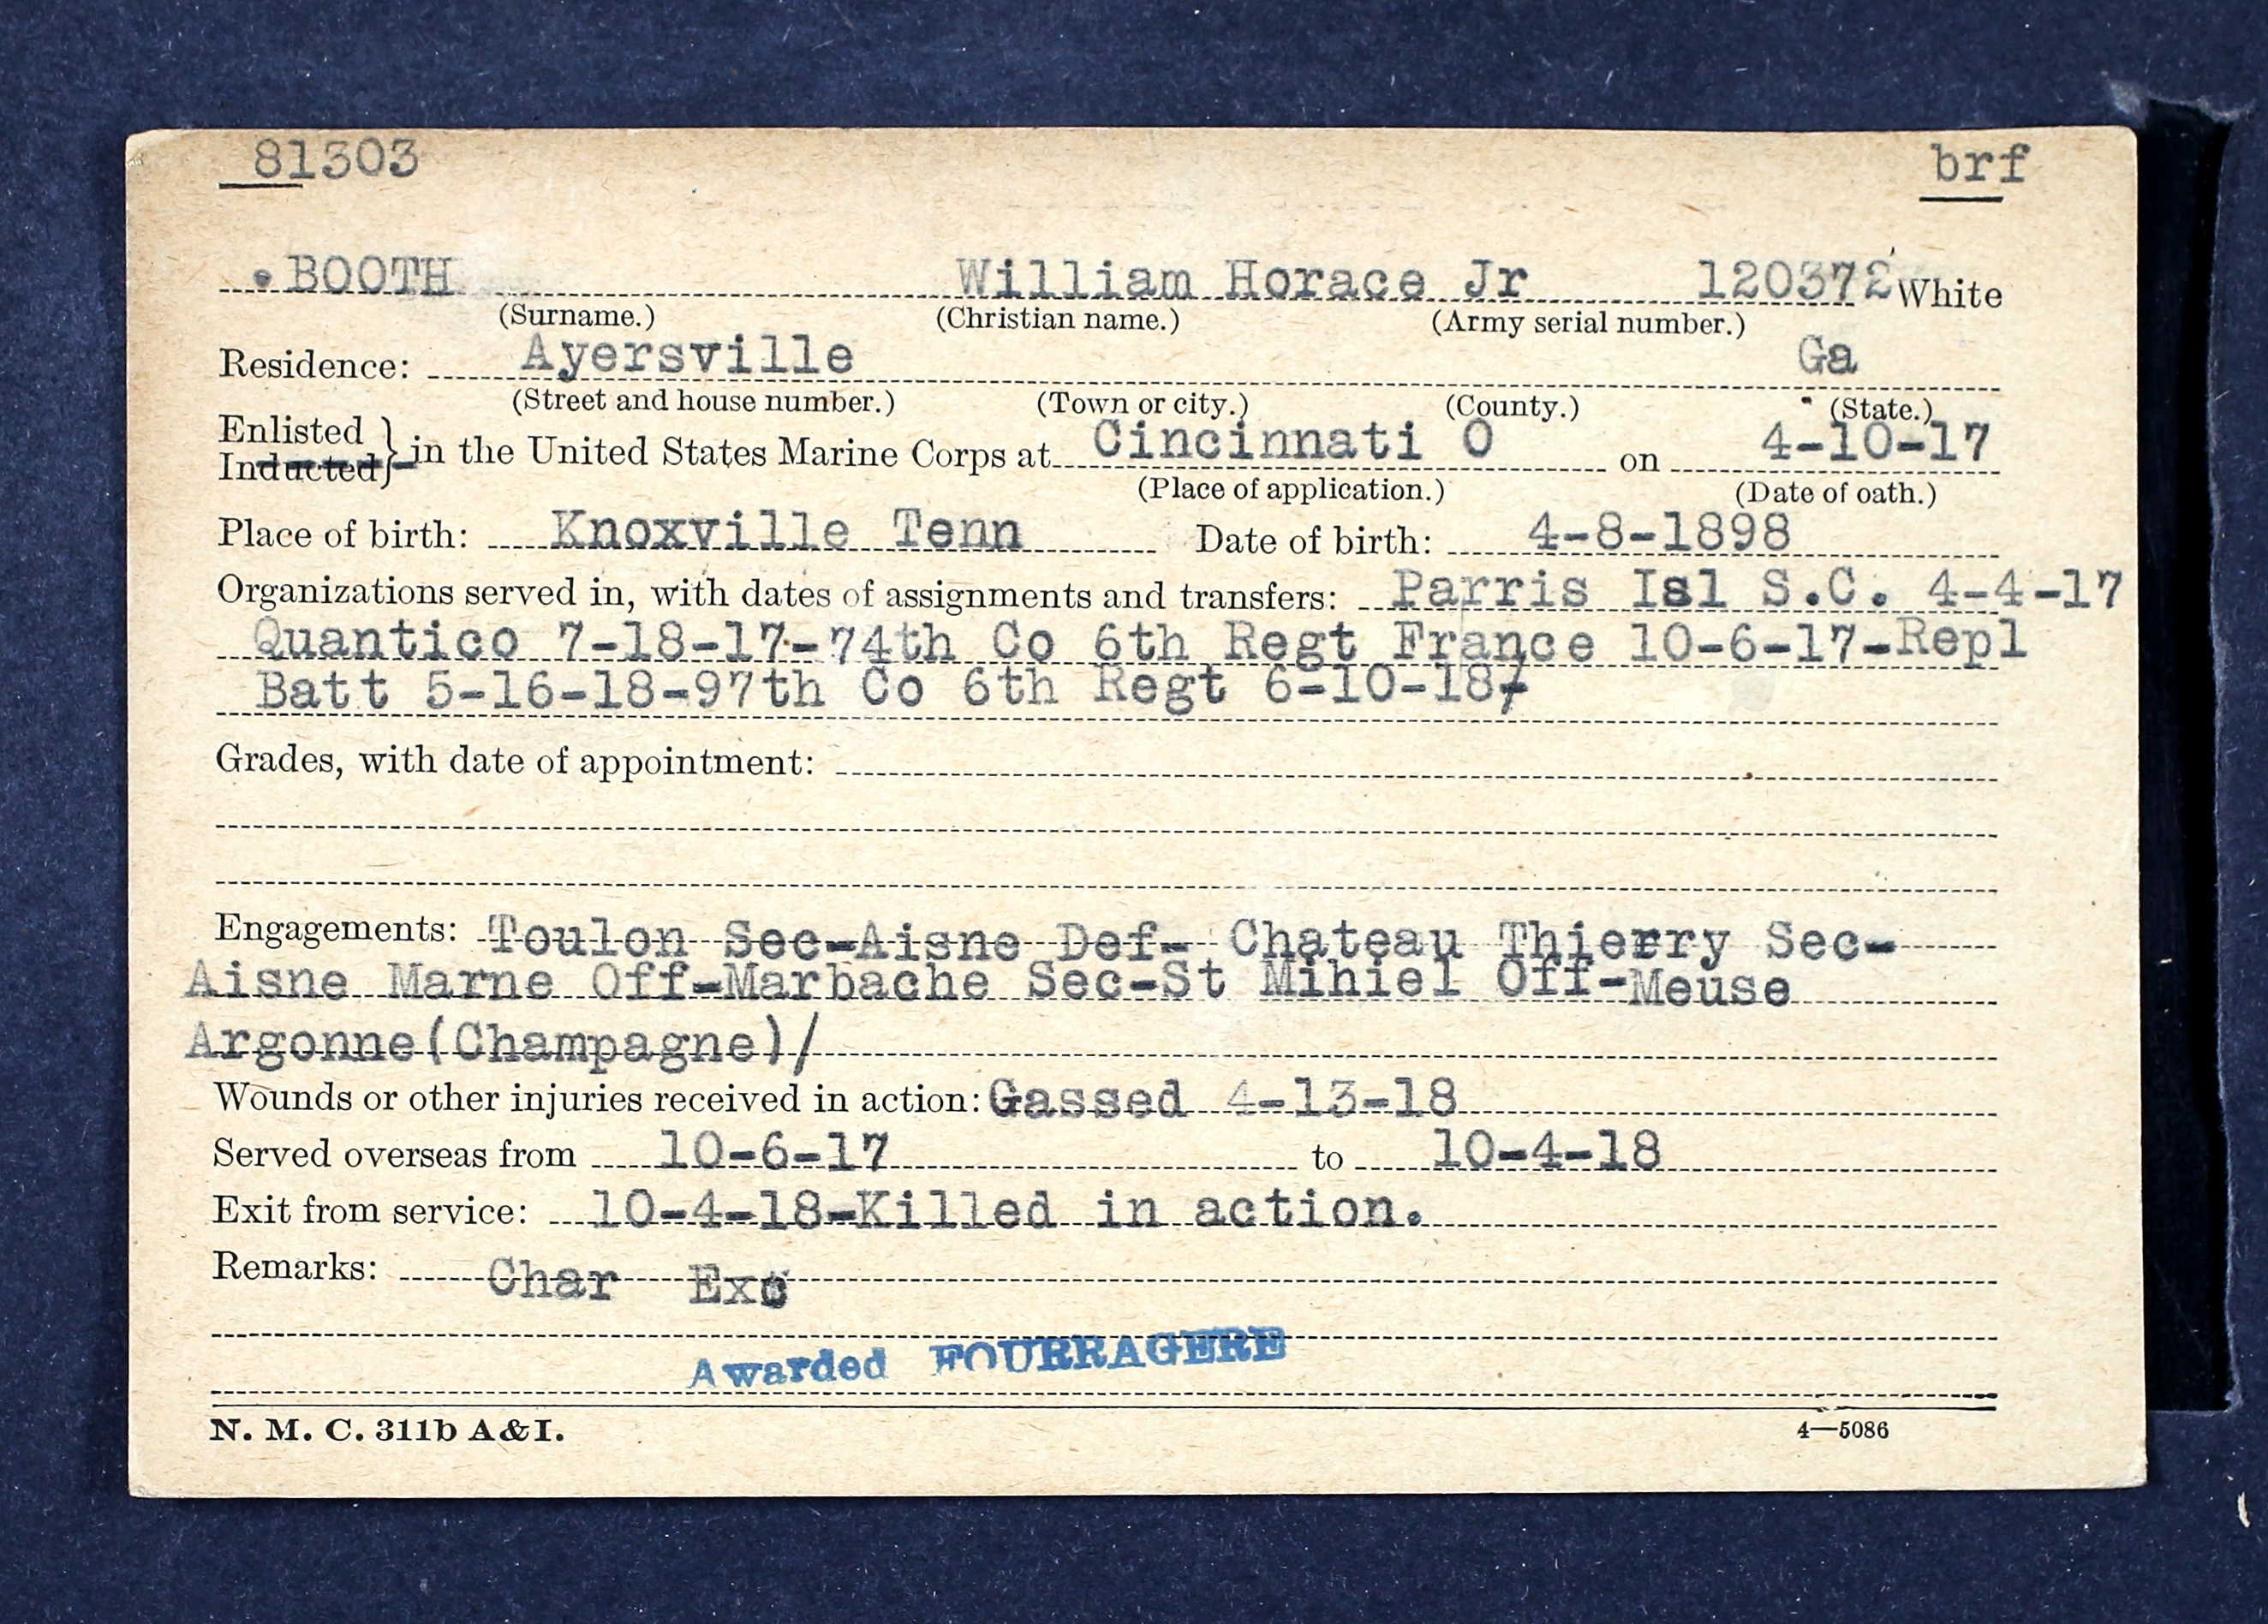 81303 brf
BOOTH William Horace Jr 120372 White
(Surname.) (Christian name.) (Army serial number.)
Residence: Ayersville Ga
(Street and house number.) (Town or city.) (County.) (State.)
Enlisted
Inducted } in the United States Marine Corps at Cincinnati O on 4-10-17
(Place of application.) (Date of oath.)
Place of birth: Knoxville Tenn Date of birth: 4-8-1898
Organizations served in, with dates of assignments and transfers: Parris Isl S.C. 4-4-17
Quantico 7-18-17-74th Co 6th Regt France 10-6-17-Repl
Batt 5-16-18-97th Co 6th Regt 6-10-18/
Grades, with date of appointment:
Engagements: Toulon Sec-Aisne Def- Chateau Thierry Sec-
Aisne Marne Off-Marbache Sec-St Mihiel Off-Meuse
Argonne(Champagne)/
Wounds or other injuries received in action: Gassed 4-13-18
Served overseas from 10-6-17 to 10-4-18
Exit from service: 10-4-18-Killed in action.
Remarks: Char Exc
Awarded FOURRAGERE
N. M. C. 311b A&I. 4—5086